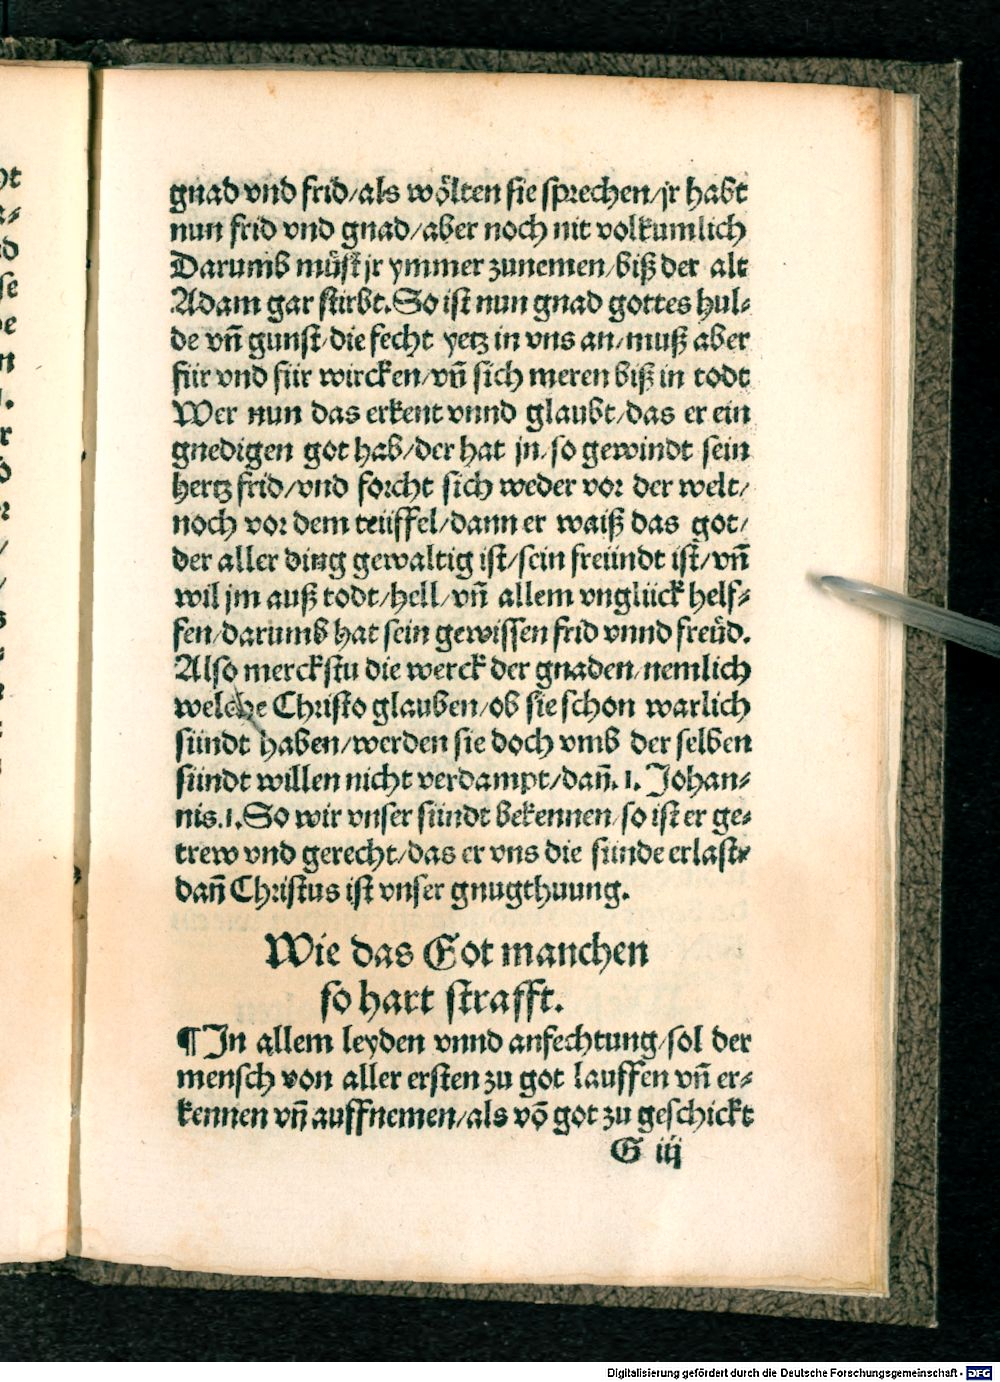 gnad vnd frid/als wölten sie sprechen/jr habt
nun frid vnd gnad/aber noch nit volkumlich
Darumb müst jr ymmer zunemen/biß der alt
Adam gar stirbt. So ist nun gnad gottes hul⸗
de vñ gunst/die fecht yetz in vns an/muß aber
für vnd für wircken/vñ sich meren biß in todt
Wer nun das erkent vnnd glaubt/das er ein
gnedigen got hab/der hat jn/so gewindt sein
hertz frid/vnd forcht sich weder vor der welt/
noch vor dem teüffel/dann er waiß das got/
der aller ding gewaltig ist/sein freündt ist/vñ
wil jm auß todt/hell/vñ allem vnglück helf⸗
fen/darumb hat sein gewissen frid vnnd freüd.
Also merckstu die werck der gnaden/nemlich
welche Christo glauben/ob sie schon warlich
sündt haben/werden sie doch vmb der selben
sündt willen nicht verdampt/dañ. 1. Johan⸗
nis.1. So wir vnser sündt bekennen/so ist er ge⸗
trew vnd gerecht/das er vns die sünde erlast⸗
dañ Christus ist vnser gnugthuung.
Wie das Got manchen
so hart strafft.
¶ In allem leyden vnnd anfechtung/sol der
mensch von aller ersten zu got lauffen vñ er⸗
kennen vñ auffnemen/als võ got zu geschickt
G iij
Digitalisierung gefördert durch die Deutsche Forschungsgemeinschaft - DFG